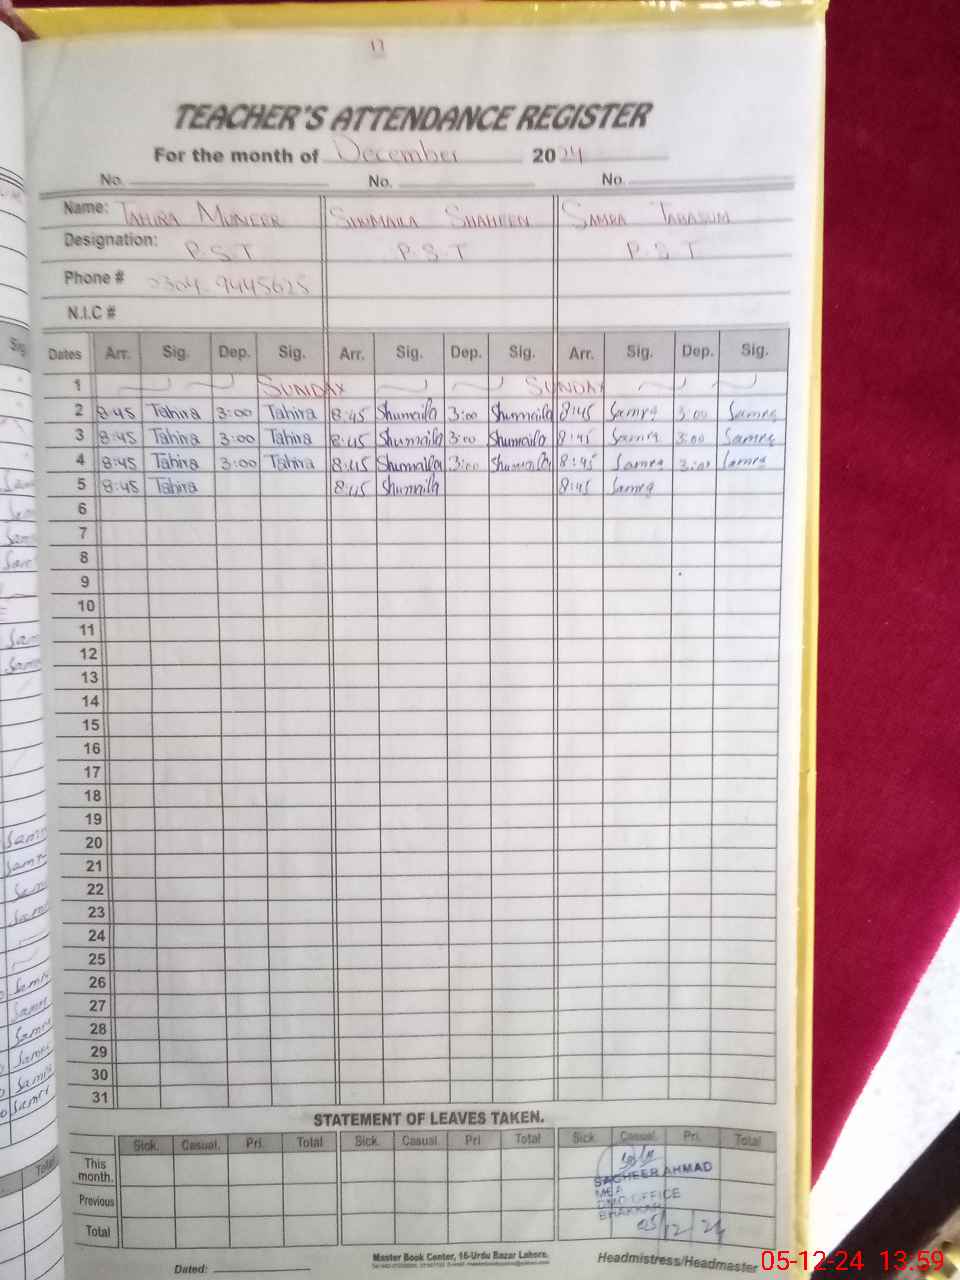 17
TEACHER'S ATTENDANCE REGISTER
For the month of December 2024
No. No. No.
Name: TAHIRA MUNEER SHUMAILA SHAHEEN SAMRA TABASUM
Designation: P.S.T P.S.T P.S.T
Phone # 0304-9445625
N.I.C #
Dates Arr. Sig. Dep. Sig. Arr. Sig. Dep. Sig. Arr. Sig. Dep. Sig.
1 SUNDAY SUNDAY
2 8:45 Tahira 3:00 Tahira 8:45 Shumaila 3:00 Shumaila 8:45 Samra 3:00 Samra
3 8:45 Tahira 3:00 Tahira 8:45 Shumaila 3:00 Shumaila 8:45 Samra 3:00 Samra
4 8:45 Tahira 3:00 Tahira 8:45 Shumaila 3:00 Shumaila 8:45 Samra 3:00 Samra
5 8:45 Tahira 8:45 Shumaila 8:45 Samra
6
7
8
9
10
11
12
13
14
15
16
17
18
19
20
21
22
23
24
25
26
27
28
29
30
31
STATEMENT OF LEAVES TAKEN.
Sick. Casual. Pri. Total Sick. Casual. Pri Total Sick. Casual. Pri. Total
This month.
Previous
Total
SAGHEER AHMAD
MEA
DMO OFFICE
BHAKKAR
05/12/24
Dated:
Master Book Center, 16-Urdu Bazar Lahore.
Headmistress/Headmaster
05-12-24 13:59